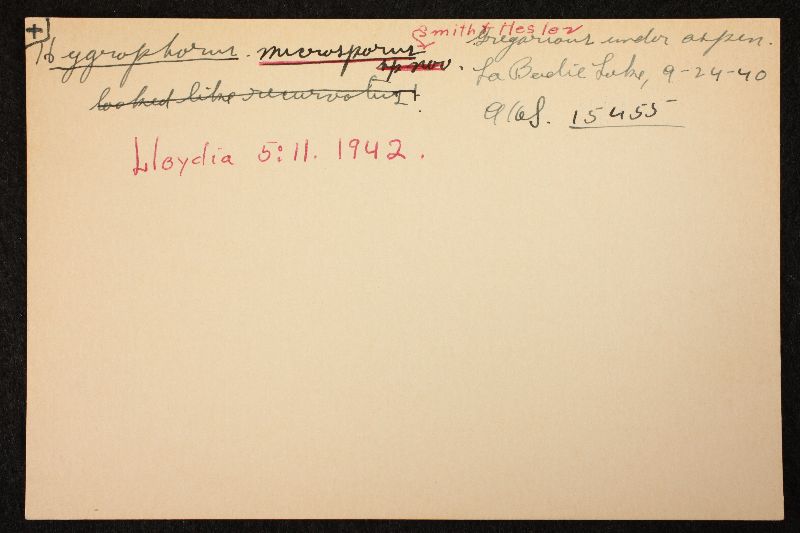 +
Hygrophorus. microsporus Smith & Hesler
sp nov.
looked like recurvatus
Lloydia 5:11. 1942.
Gregarious under aspen.
La Badie Lake, 9-24-40
AHS. 15455